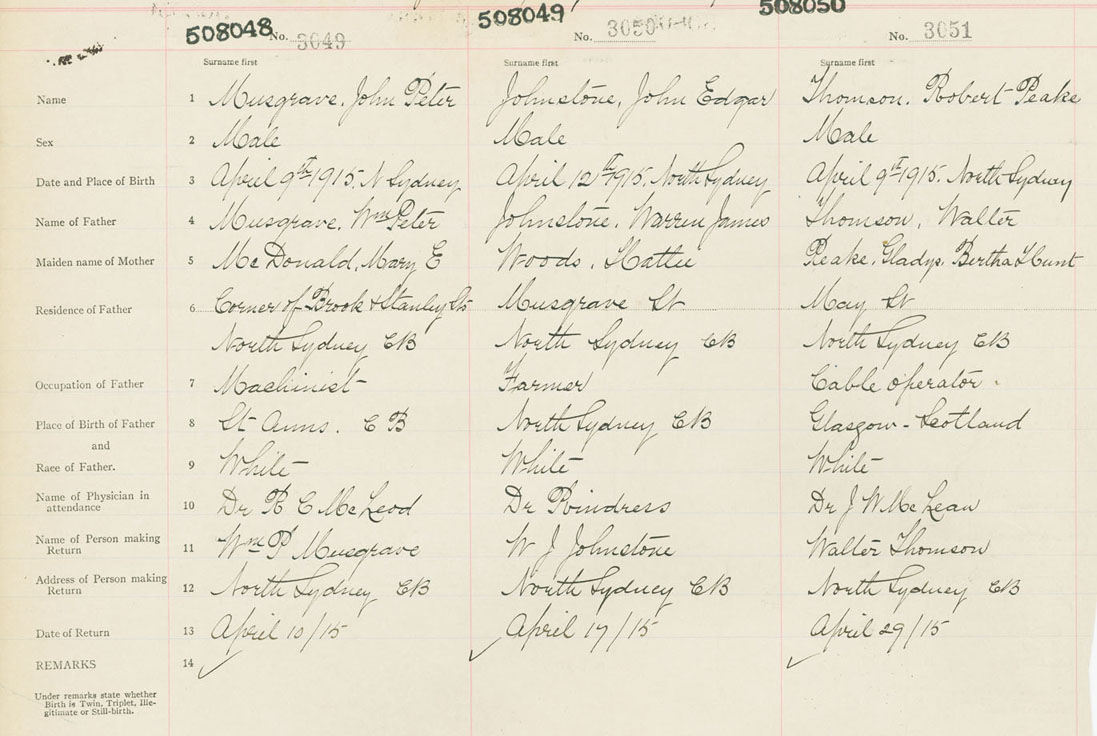 508048 No. 3049 508049 No. 3050 508050 No. 3051
Surname first Surname first Surname first
Name 1 Musgrave, John Peter Johnstone, John Edgar Thomson, Robert Peake
Sex 2 Male Male Male
Date and Place of Birth 3 April 9th 1915. N Sydney April 12th 1915. North Sydney April 9th 1915. North Sydney
Name of Father 4 Musgrave, Wm Peter Johnstone, Warren James Thomson, Walter
Maiden name of Mother 5 McDonald, Mary E Woods, Hattie Peake, Gladys Bertha Hunt
Residence of Father 6 Corner of Brook & Stanley Sts Musgrave St May St
North Sydney CB North Sydney CB North Sydney CB
Occupation of Father 7 Machinist Farmer Cable operator.
Place of Birth of Father 8 St Anns. C B North Sydney CB Glasgow - Scotland
and
Race of Father. 9 White White White
Name of Physician in attendance 10 Dr R C McLeod Dr Dr J W McLean
Name of Person making Return 11 Wm P Musgrave W J Johnstone Walter Thomson
Address of Person making Return 12 North Sydney CB North Sydney CB North Sydney CB
Date of Return 13 April 10/15 April 17/15 April 29/15
REMARKS 14
Under remarks state whether
Birth is Twin, Triplet, Ille-
gitimate or Still-birth.